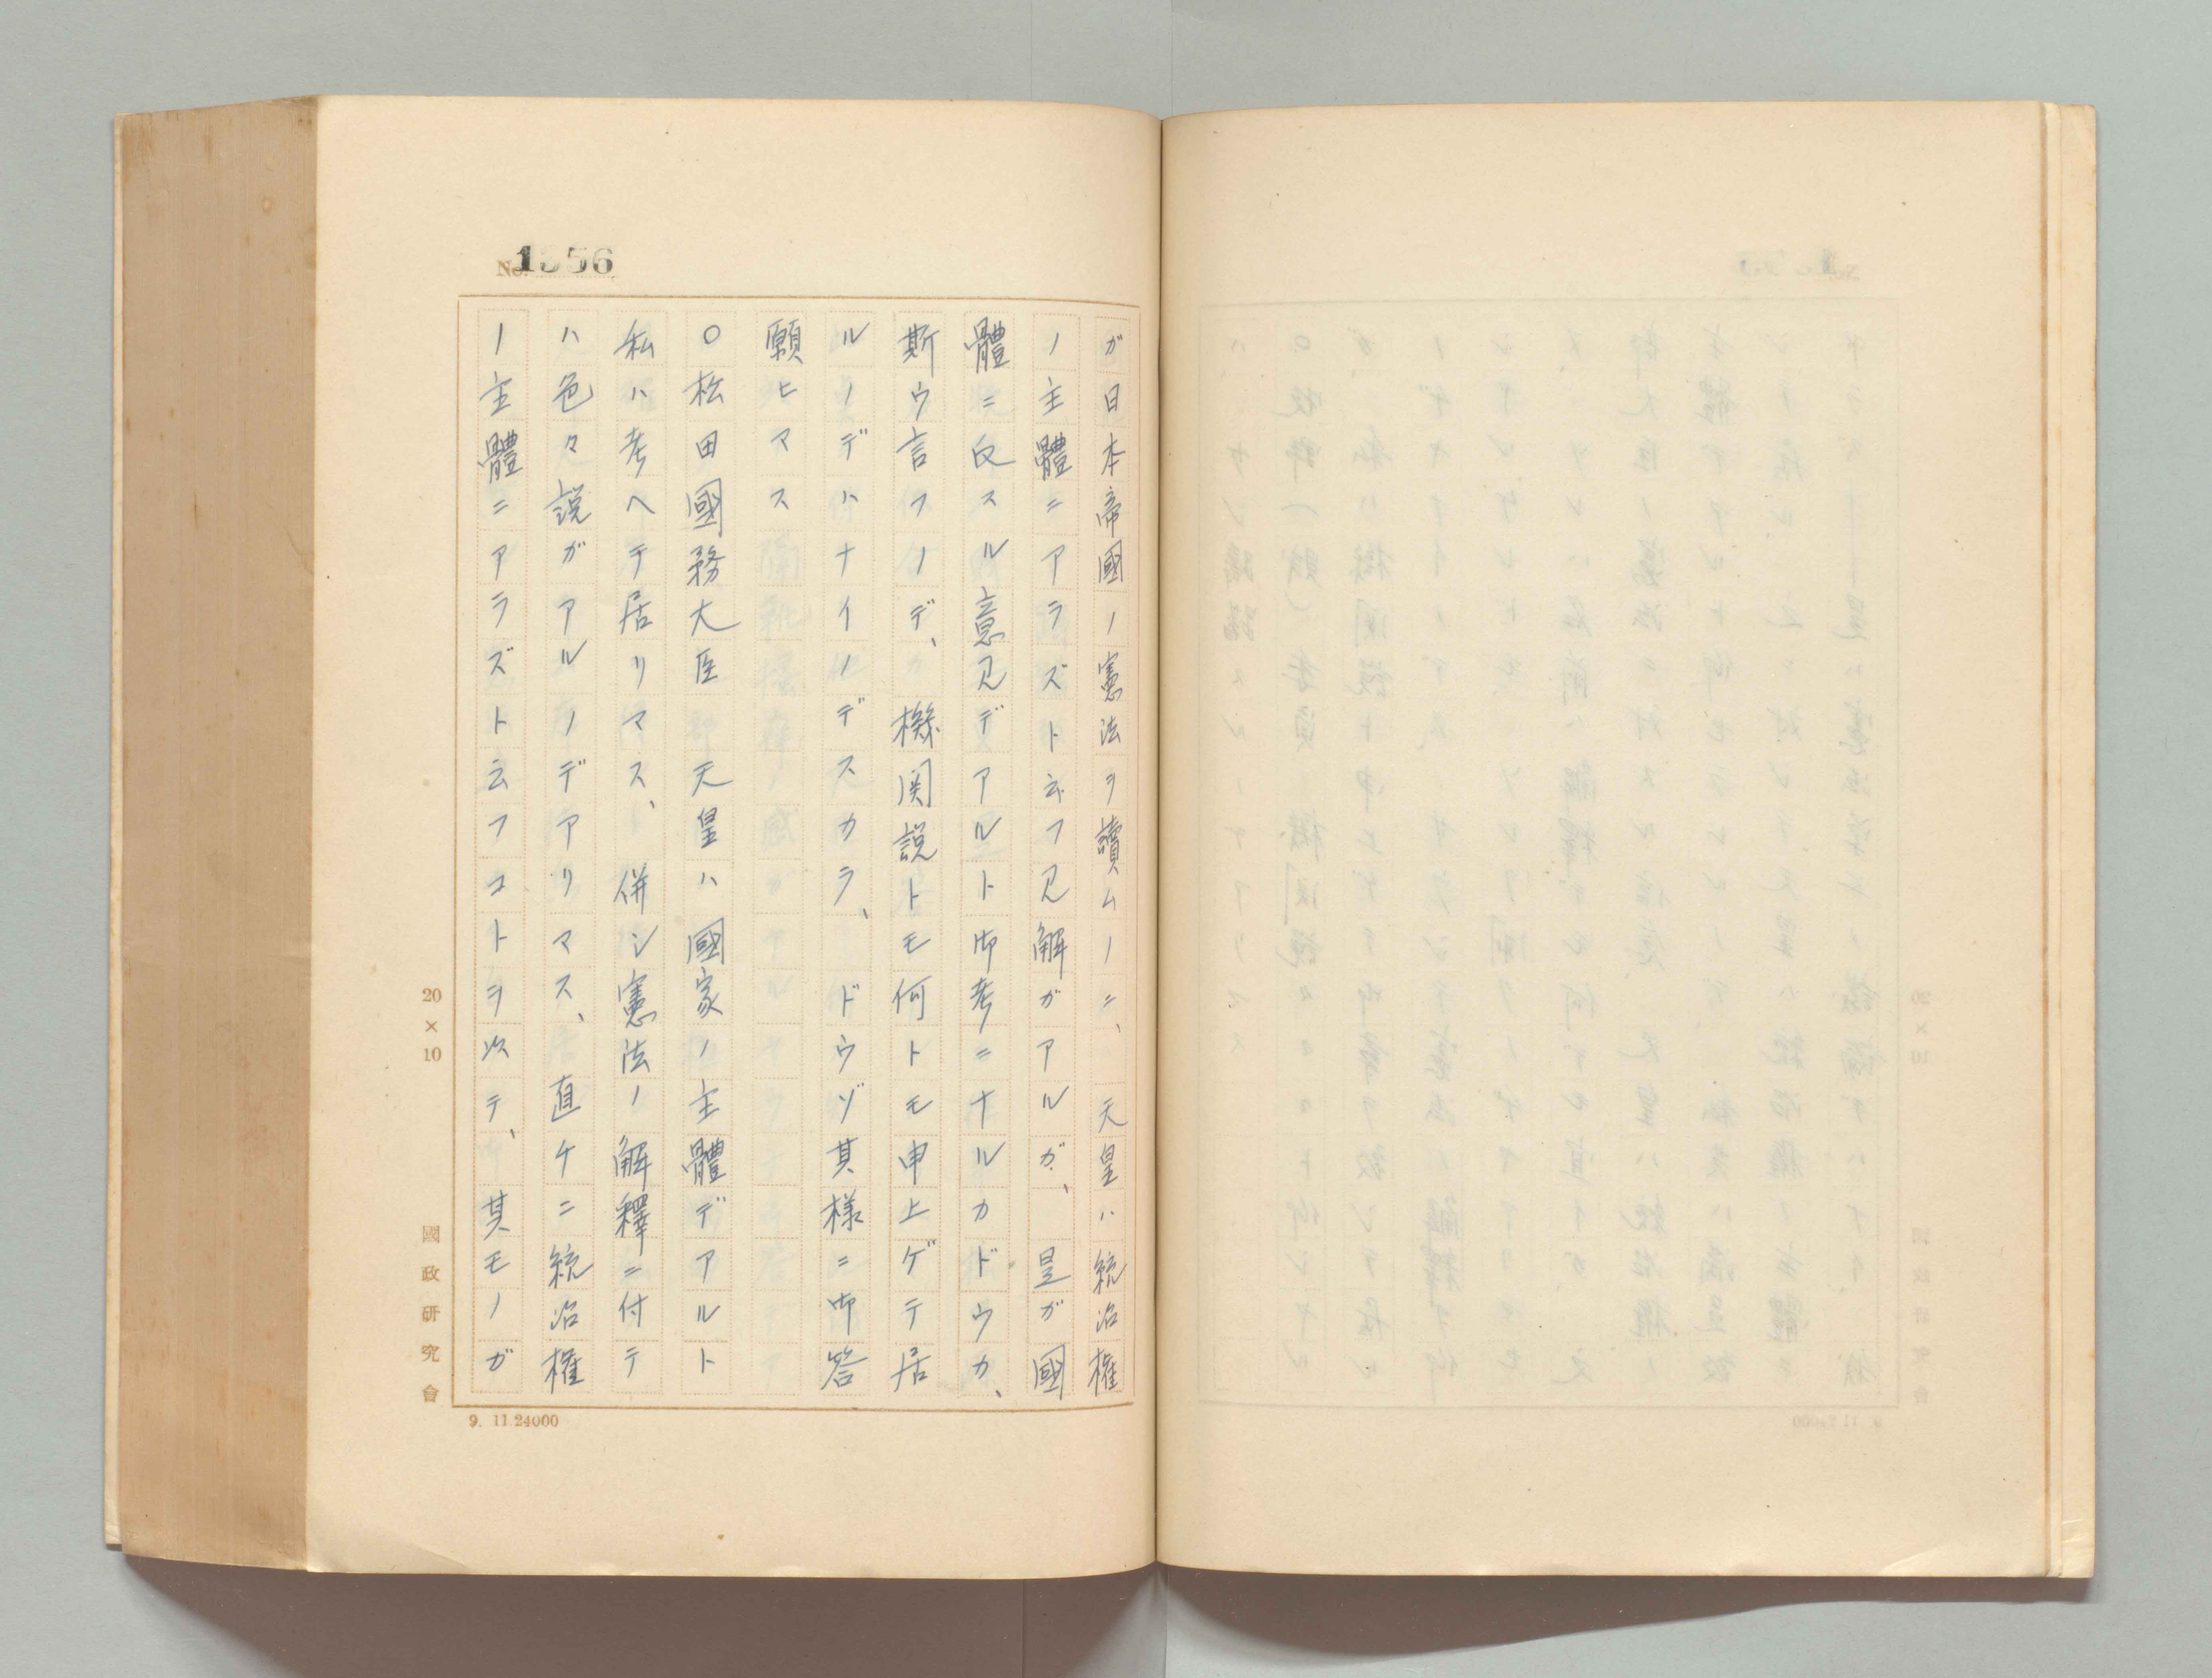 No. 1356
ガ日本帝國ノ憲法ヲ讀ムノニ、 天皇ハ統治權
ノ主體ニアラズト云フ見解ガアルガ、 是ガ國
體ニ反スル意見デアルト御考ニナルカドウカ、
斯ウ言フノデ、 機関説トモ何トモ申上ゲテ居
ルノデハナイノデスカラ、 ドウゾ其様ニ御答
願ヒマス
〇松田國務大臣 天皇ハ國家ノ主體デアルト
私ハ考ヘテ居リマス、 併シ憲法ノ解釋ニ付テ
ハ色々説ガアルノデアリマス、 直ケニ統治權
ノ主體ニアラズト云フコトヲ以テ、 其モノガ
20×10
國政研究會
9. 11.24000